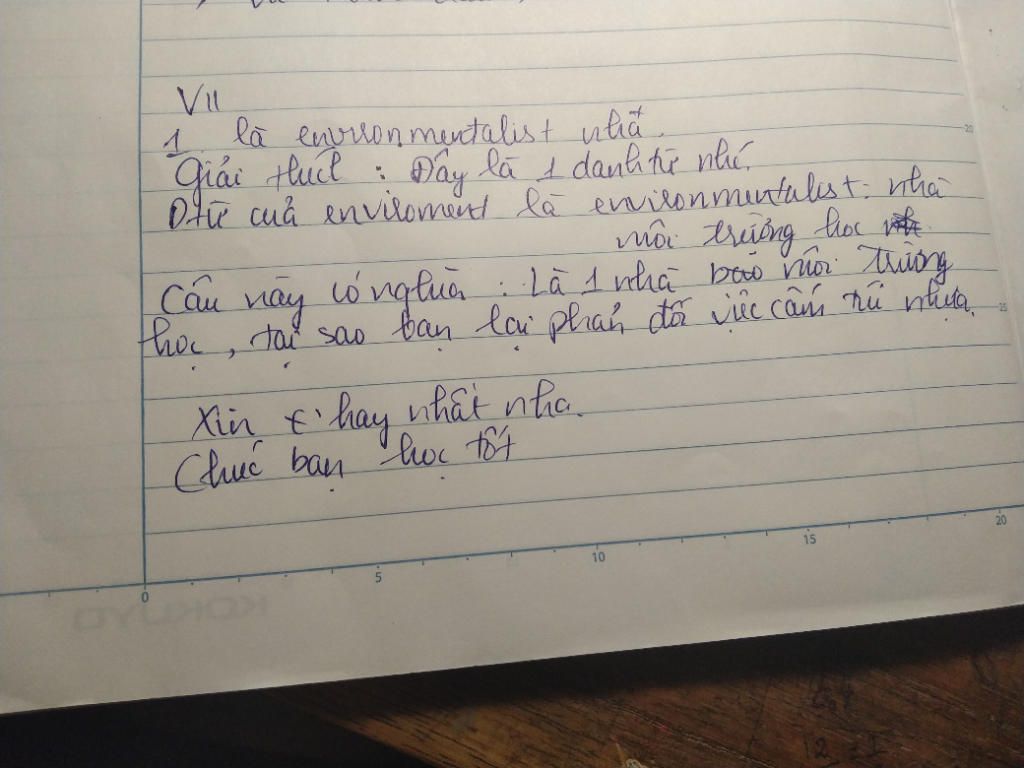 VII
1. là environmentalist nhá.
Giải thích : Đây là 1 danh từ nhé.
Dtừ của enviroment là environmentalist : nhà
môi trường học
Câu này có nghĩa : Là 1 nhà bảo môi trường
học, tại sao bạn lại phản đối việc cấm túi nhựa.
Xin t' hay nhất nha.
Chúc bạn học tốt
0 5 10 15 20
20
25
KOKUYO